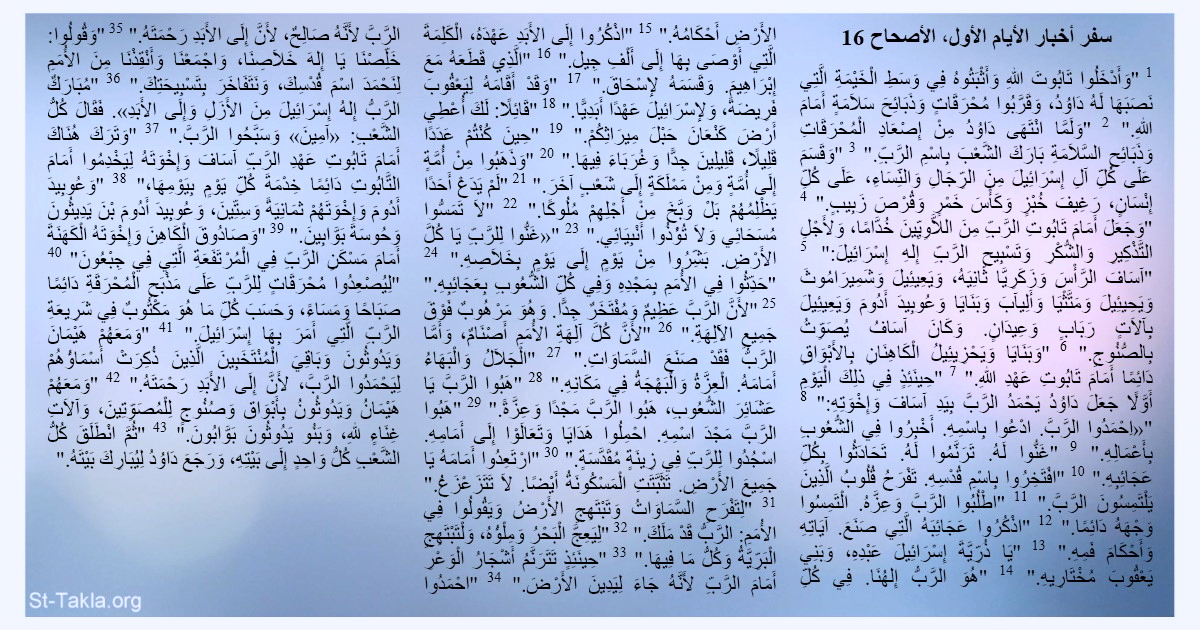 سفر أخبار الأيام الأول، الأصحاح 16
1 "وَأَدْخَلُوا تَابُوتَ اللهِ وَأَثْبَتُوهُ فِي وَسَطِ الْخَيْمَةِ الَّتِي
نَصَبَهَا لَهُ دَاوُدُ، وَقَرَّبُوا مُحْرَقَاتٍ وَذَبَائِحَ سَلاَمَةٍ أَمَامَ
اللهِ." 2 "وَلَمَّا انْتَهَى دَاوُدُ مِنْ إِصْعَادِ الْمُحْرَقَاتِ
وَذَبَائِحِ السَّلاَمَةِ بَارَكَ الشَّعْبَ بِاسْمِ الرَّبِّ." 3 "وَقَسَمَ
عَلَى كُلِّ آلِ إِسْرَائِيلَ مِنَ الرِّجَالِ وَالنِّسَاءِ، عَلَى كُلِّ
إِنْسَانٍ، رَغِيفَ خُبْزٍ وَكَأْسَ خَمْرٍ وَقُرْصَ زَبِيبٍ." 4
"وَجَعَلَ أَمَامَ تَابُوتِ الرَّبِّ مِنَ اللاَّوِيِّينَ خُدَّامًا، وَلأَجْلِ
التَّذْكِيرِ وَالشُّكْرِ وَتَسْبِيحِ الرَّبِّ إِلهِ إِسْرَائِيلَ:" 5
"آسَافَ الرَّأْسَ وَزَكَرِيَّا ثَانِيَهُ، وَيَعِيئِيلَ وَشَمِيرَامُوثَ
وَيَحِيئِيلَ وَمَتَّثْيَا وَأَلِيآبَ وَبَنَايَا وَعُوبِيدَ أَدُومَ وَيَعِيئِيلَ
بِآلاَتٍ رَبَابٍ وَعِيدَانٍ. وَكَانَ آسَافُ يُصَوِّتُ
بِالصُّنُوجِ." 6 "وَبَنَايَا وَيَحْزِيئِيلُ الْكَاهِنَانِ بِالأَبْوَاقِ
دَائِمًا أَمَامَ تَابُوتِ عَهْدِ اللهِ." 7 "حِينَئِذٍ فِي ذلِكَ الْيَوْمِ
أَوَّلًا جَعَلَ دَاوُدُ يَحْمَدُ الرَّبَّ بِيَدِ آسَافَ وَإِخْوَتِهِ:" 8
"«اِحْمَدُوا الرَّبَّ. ادْعُوا بِاسْمِهِ. أَخْبِرُوا فِي الشُّعُوبِ
بِأَعْمَالِهِ." 9 "غَنُّوا لَهُ. تَرَنَّمُوا لَهُ. تَحَادَثُوا بِكُلِّ
عَجَائِبِهِ." 10 "افْتَخِرُوا بِاسْمِ قُدْسِهِ. تَفْرَحُ قُلُوبُ الَّذِينَ
يَلْتَمِسُونَ الرَّبَّ." 11 "اطْلُبُوا الرَّبَّ وَعِزَّهُ. الْتَمِسُوا
وَجْهَهُ دَائِمًا." 12 "اذْكُرُوا عَجَائِبَهُ الَّتِي صَنَعَ. آيَاتِهِ
وَأَحْكَامَ فَمِهِ." 13 "يَا ذُرِّيَّةَ إِسْرَائِيلَ عَبْدِهِ، وَبَنِي
يَعْقُوبَ مُخْتَارِيهِ." 14 "هُوَ الرَّبُّ إِلهُنَا. فِي كُلِّ
الأَرْضِ أَحْكَامُهُ." 15 "اذْكُرُوا إِلَى الأَبَدِ عَهْدَهُ، الْكَلِمَةَ
الَّتِي أَوْصَى بِهَا إِلَى أَلْفِ جِيل." 16 "الَّذِي قَطَعَهُ مَعَ
إِبْرَاهِيمَ. وَقَسَمَهُ لإِسْحَاقَ." 17 "وَقَدْ أَقَامَهُ لِيَعْقُوبَ
فَرِيضَةً، وَلإِسْرَائِيلَ عَهْدًا أَبَدِيًّا." 18 "قَائِلًا: لَكَ أُعْطِي
أَرْضَ كَنْعَانَ حَبْلَ مِيرَاثِكُمْ." 19 "حِينَ كُنْتُمْ عَدَدًا
قَلِيلًا، قَلِيلِينَ جِدًّا وَغُرَبَاءَ فِيهَا." 20 "وَذَهَبُوا مِنْ أُمَّةٍ
إِلَى أُمَّةٍ وَمِنْ مَمْلَكَةٍ إِلَى شَعْبٍ آخَرَ." 21 "لَمْ يَدَعْ أَحَدًا
يَظْلِمُهُمْ بَلْ وَبَّخَ مِنْ أَجْلِهِمْ مُلُوكًا." 22 "لاَ تَمَسُّوا
مُسَحَائِي وَلاَ تُؤْذُوا أَنْبِيَائِي." 23 "«غَنُّوا لِلرَّبِّ يَا كُلَّ
الأَرْضِ. بَشِّرُوا مِنْ يَوْمٍ إِلَى يَوْمٍ بِخَلاَصِهِ." 24
"حَدِّثُوا فِي الأُمَمِ بِمَجْدِهِ وَفِي كُلِّ الشُّعُوبِ بِعَجَائِبِهِ."
25 "لأَنَّ الرَّبَّ عَظِيمٌ وَمُفْتَخَرٌ جِدًّا. وَهُوَ مَرْهُوبٌ فَوْقَ
جَمِيعِ الآلِهَةِ." 26 "لأَنَّ كُلَّ آلِهَةِ الأُمَمِ أَصْنَامٌ، وَأَمَّا
الرَّبُّ فَقَدْ صَنَعَ السَّمَاوَاتِ." 27 "الْجَلاَلُ وَالْبَهَاءُ
أَمَامَهُ. الْعِزَّةُ وَالْبَهْجَةُ فِي مَكَانِهِ." 28 "هَبُوا الرَّبَّ يَا
عَشَائِرَ الشُّعُوبِ، هَبُوا الرَّبَّ مَجْدًا وَعِزَّةً." 29 "هَبُوا
الرَّبَّ مَجْدَ اسْمِهِ. احْمِلُوا هَدَايَا وَتَعَالَوْا إِلَى أَمَامِهِ.
اسْجُدُوا لِلرَّبِّ فِي زِينَةٍ مُقَدَّسَةٍ." 30 "ارْتَعِدُوا أَمَامَهُ يَا
جَمِيعَ الأَرْضِ. تَثَبَّتَتِ الْمَسْكُونَةُ أَيْضًا. لاَ تَتَزَعْزَعُ."
31 "لِتَفْرَحِ السَّمَاوَاتُ وَتَبْتَهِجِ الأَرْضُ وَيَقُولُوا فِي
الأُمَمِ: الرَّبُّ قَدْ مَلَكَ." 32 "لِيَعِجَّ الْبَحْرُ وَمِلْؤُهُ، وَلْتَبْتَهِجِ
الْبَرِّيَّةُ وَكُلُّ مَا فِيهَا." 33 "حِينَئِذٍ تَتَرَنَّمُ أَشْجَارُ الْوَعْرِ
أَمَامَ الرَّبِّ لأَنَّهُ جَاءَ لِيَدِينَ الأَرْضَ." 34 "احْمَدُوا
الرَّبَّ لأَنَّهُ صَالِحٌ، لأَنَّ إِلَى الأَبَدِ رَحْمَتَهُ." 35 "وَقُولُوا:
خَلِّصْنَا يَا إِلهَ خَلاَصِنَا، وَاجْمَعْنَا وَأَنْقِذْنَا مِنَ الأُمَمِ
لِنَحْمَدَ اسْمَ قُدْسِكَ، وَنَتَفَاخَرَ بِتَسْبِيحَتِكَ." 36 "مُبَارَكٌ
الرَّبُّ إِلهُ إِسْرَائِيلَ مِنَ الأَزَلِ وَإِلَى الأَبَدِ». فَقَالَ كُلُّ
الشَّعْبِ: «آمِينَ» وَسَبَّحُوا الرَّبَّ." 37 "وَتَرَكَ هُنَاكَ
أَمَامَ تَابُوتِ عَهْدِ الرَّبِّ آسَافَ وَإِخْوَتَهُ لِيَخْدِمُوا أَمَامَ
التَّابُوتِ دَائِمًا خِدْمَةَ كُلِّ يَوْمٍ بِيَوْمِهَا،" 38 "وَعُوبِيدَ
أَدُومَ وَإِخْوَتَهُمْ ثَمَانِيَةً وَسِتِّينَ، وَعُوبِيدَ أَدُومَ بْنَ يَدِيثُونَ
وَحُوسَةَ بَوَّابِينَ." 39 "وَصَادُوقَ الْكَاهِنَ وَإِخْوَتَهُ الْكَهَنَةَ
أَمَامَ مَسْكَنِ الرَّبِّ فِي الْمُرْتَفَعَةِ الَّتِي فِي جِبْعُونَ" 40
"لِيُصْعِدُوا مُحْرَقَاتٍ لِلرَّبِّ عَلَى مَذْبَحِ الْمُحْرَقَةِ دَائِمًا
صَبَاحًا وَمَسَاءً، وَحَسَبَ كُلِّ مَا هُوَ مَكْتُوبٌ فِي شَرِيعَةِ
الرَّبِّ الَّتِي أَمَرَ بِهَا إِسْرَائِيلَ." 41 "وَمَعَهُمْ هَيْمَانَ
وَيَدُوثُونَ وَبَاقِيَ الْمُنْتَخَبِينَ الَّذِينَ ذُكِرَتْ أَسْمَاؤُهُمْ
لِيَحْمَدُوا الرَّبَّ، لأَنَّ إِلَى الأَبَدِ رَحْمَتَهُ." 42 "وَمَعَهُمْ
هَيْمَانُ وَيَدُوثُونُ بِأَبْوَاق وَصُنُوجٍ لِلْمُصَوِّتِينَ، وَآلاَتِ
غِنَاءٍ للهِ، وَبَنُو يَدُوثُونَ بَوَّابُونَ." 43 "ثُمَّ انْطَلَقَ كُلُّ
الشَّعْبِ كُلُّ وَاحِدٍ إِلَى بَيْتِهِ، وَرَجَعَ دَاوُدُ لِيُبَارِكَ بَيْتَهُ."
St-Takla.org